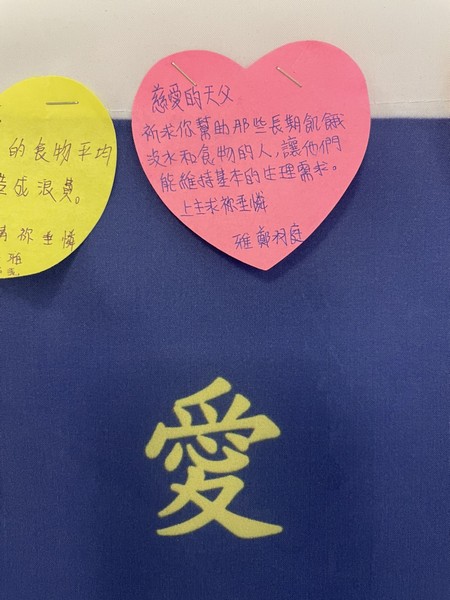 的食物平均
造成浪費。
祢垂憐
雅
慈愛的天父
祈求你幫助那些長期飢餓
沒水和食物的人,讓他們
能維持基本的生理需求。
上主求祢垂憐
雅 鄭羽庭
愛